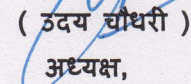 ( उदय चौधरी )
अध्यक्ष,